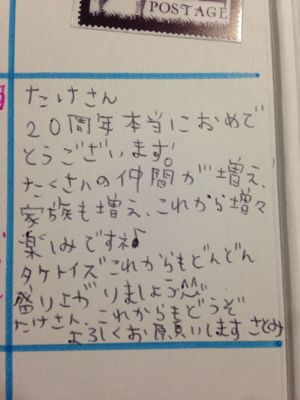 POSTAGE
たけさん
20周年本当におめで
とうございます。
たくさんの仲間が増え、
家族も増え、これから増々
楽しみですネ♪
タケトイズこれからもどんどん
盛り上がりましょう^^
たけさん、これからもどうぞ
よろしくお願いします さとみ